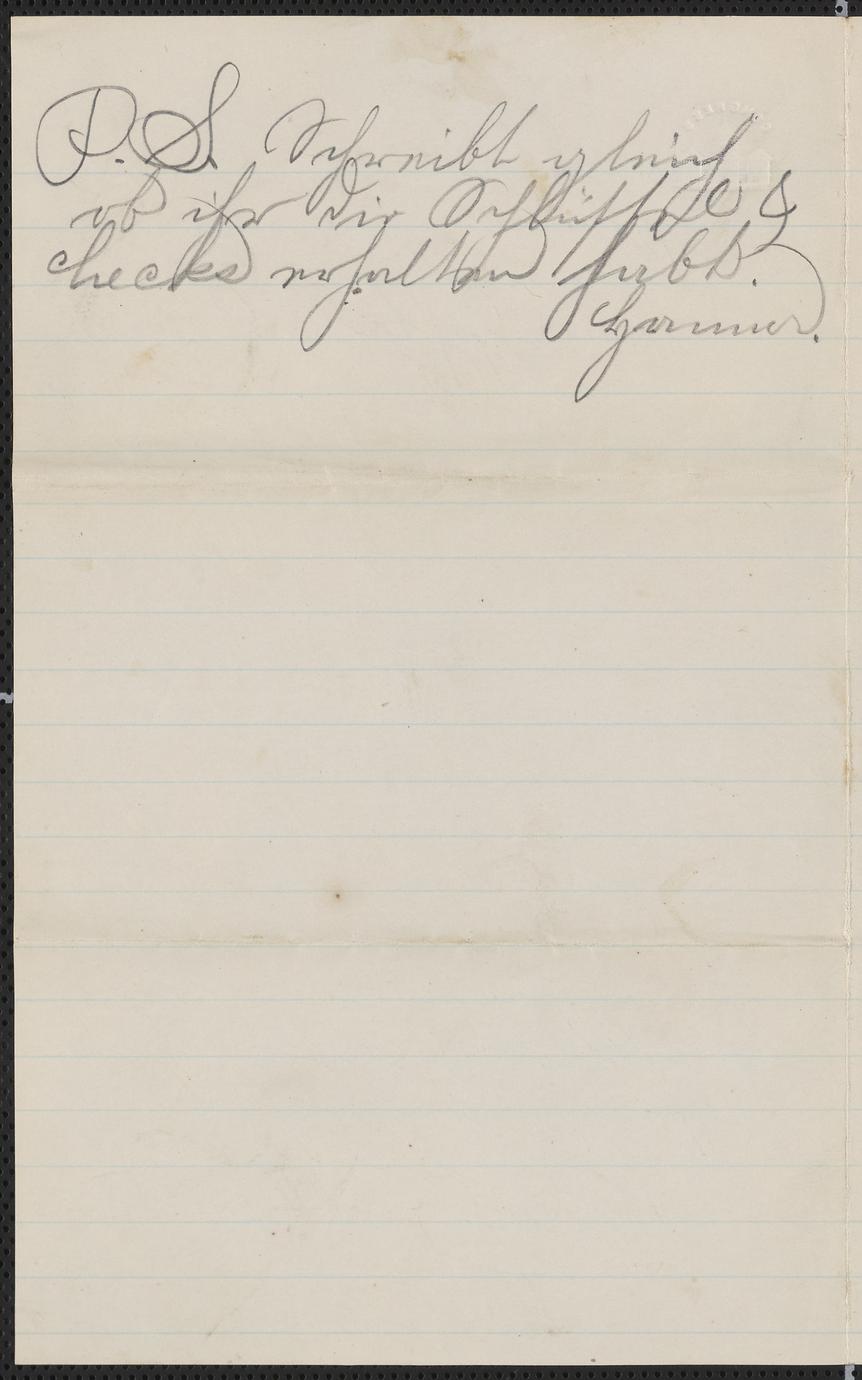 P.S. Schreibt gleich
ob ihr die Schlüssel &
checks erhalten habt.